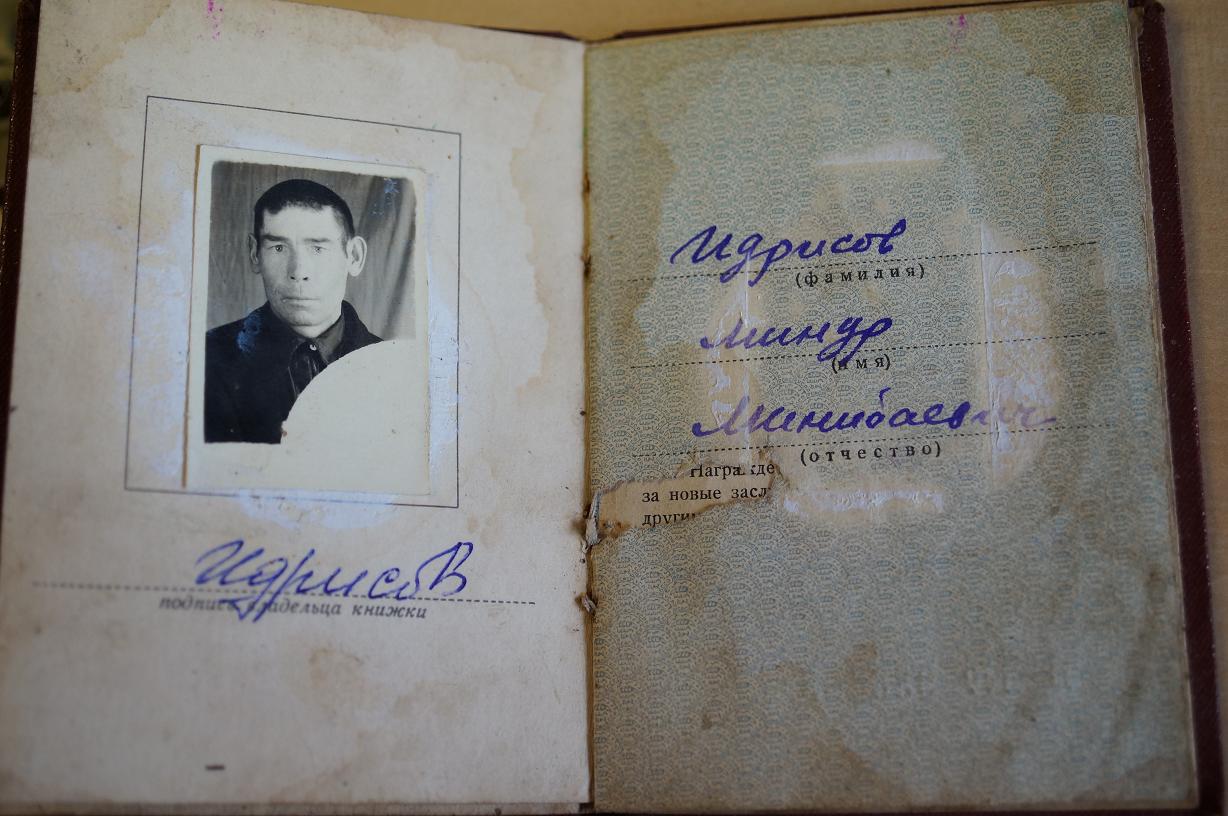 Идрисов
подпись владельца книжки
Идрисов
(фамилия)
Миндр
(имя)
Минибаевич
(отчество)
Награжде
за новые засл
други